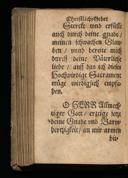 Christliche Gebet
Stercke und erfülle
auch durch deine gnade,
meinen schwachen Glau-
ben, und bereite mich
durch deine Väterliche
liebe, auf das ich dieses
Hochwirdige Sacrament
müge wirdiglich empfa-
hen.
O HERR Allmech-
tiger Gott, erzeige jetzt
deine Gnade und Barm-
hertzigkeit, an mir armen